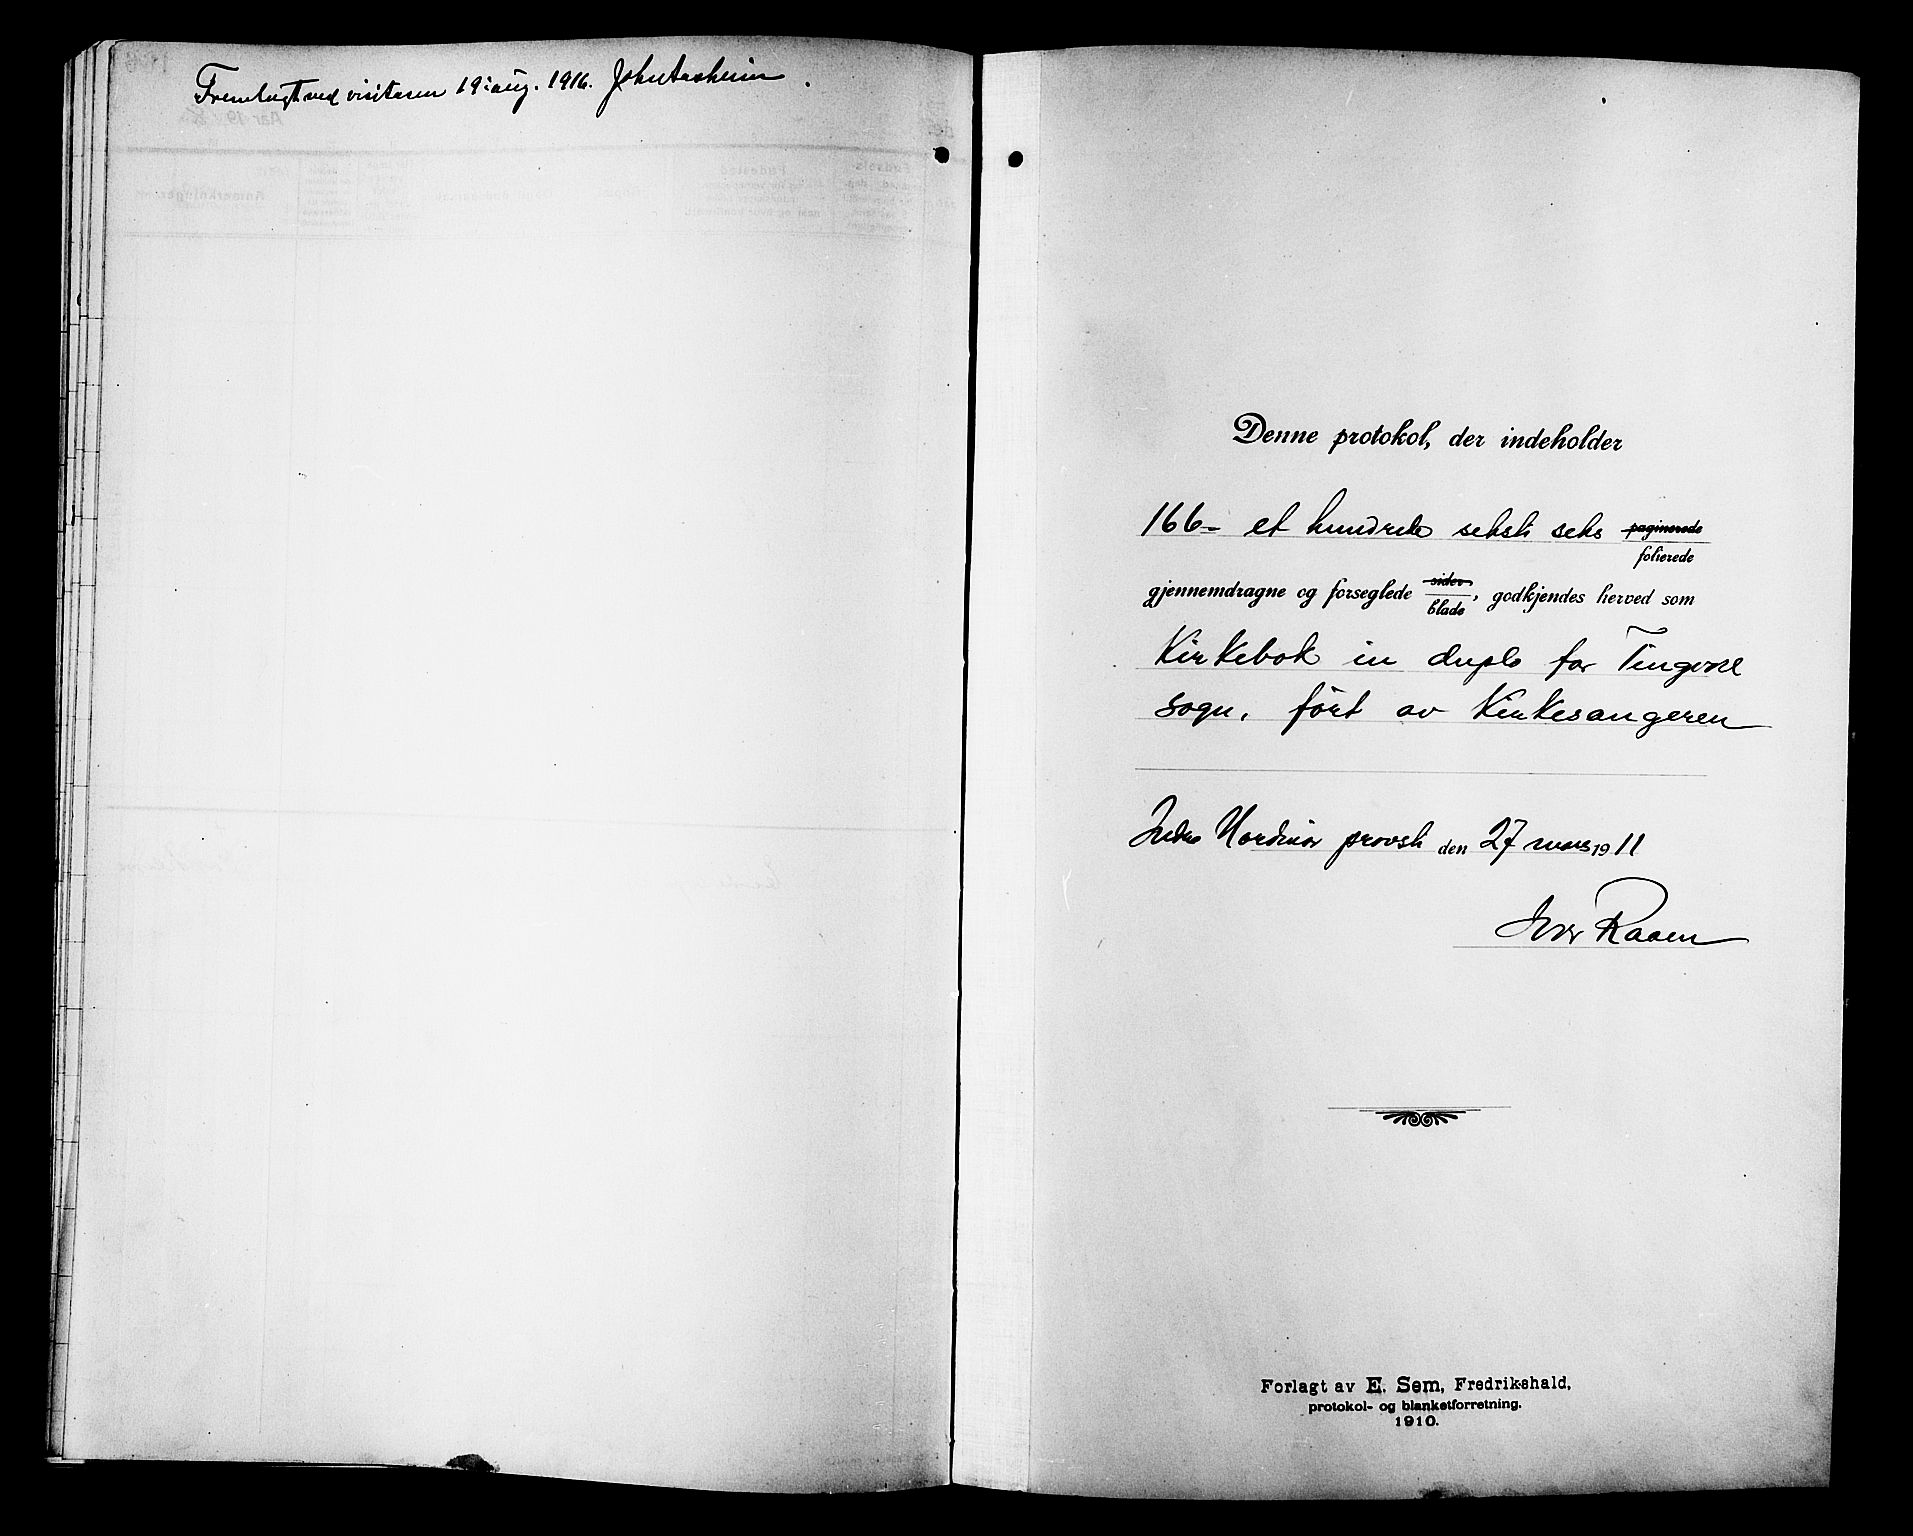 Fremlagt ved visitasen 19. aug. 1916. John Aasheim
Denne protokol, der indeholder
166 - et hundrede seksti seks paginerede
folierede
gjennemdragne og forseglede sider
blade, godkjendes herved som
Kirkebok in duplo for Tingvoll
sogn, ført av Kirkesangeren
Indre Nordmør provsti den 27 mars 1911
Iver Raaen
Forlagt av E. Sem, Fredrikshald,
protokol- og blanketforretning.
1910.